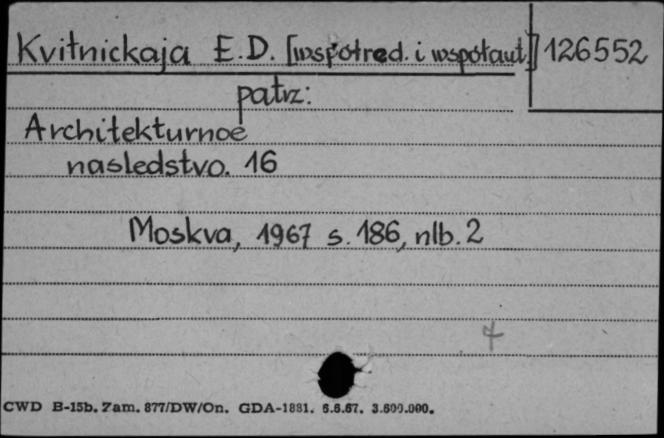 Kvitnickaja E.D. [współred. i współaut.] 126552
patrz:
Architekturnoe
nasledstvo. 16
Moskva, 1967 s. 186, nlb. 2
7
CWD B-15b. Zam. 877/DW/On. GDA-1881. 6.6.67. 3.600.000.